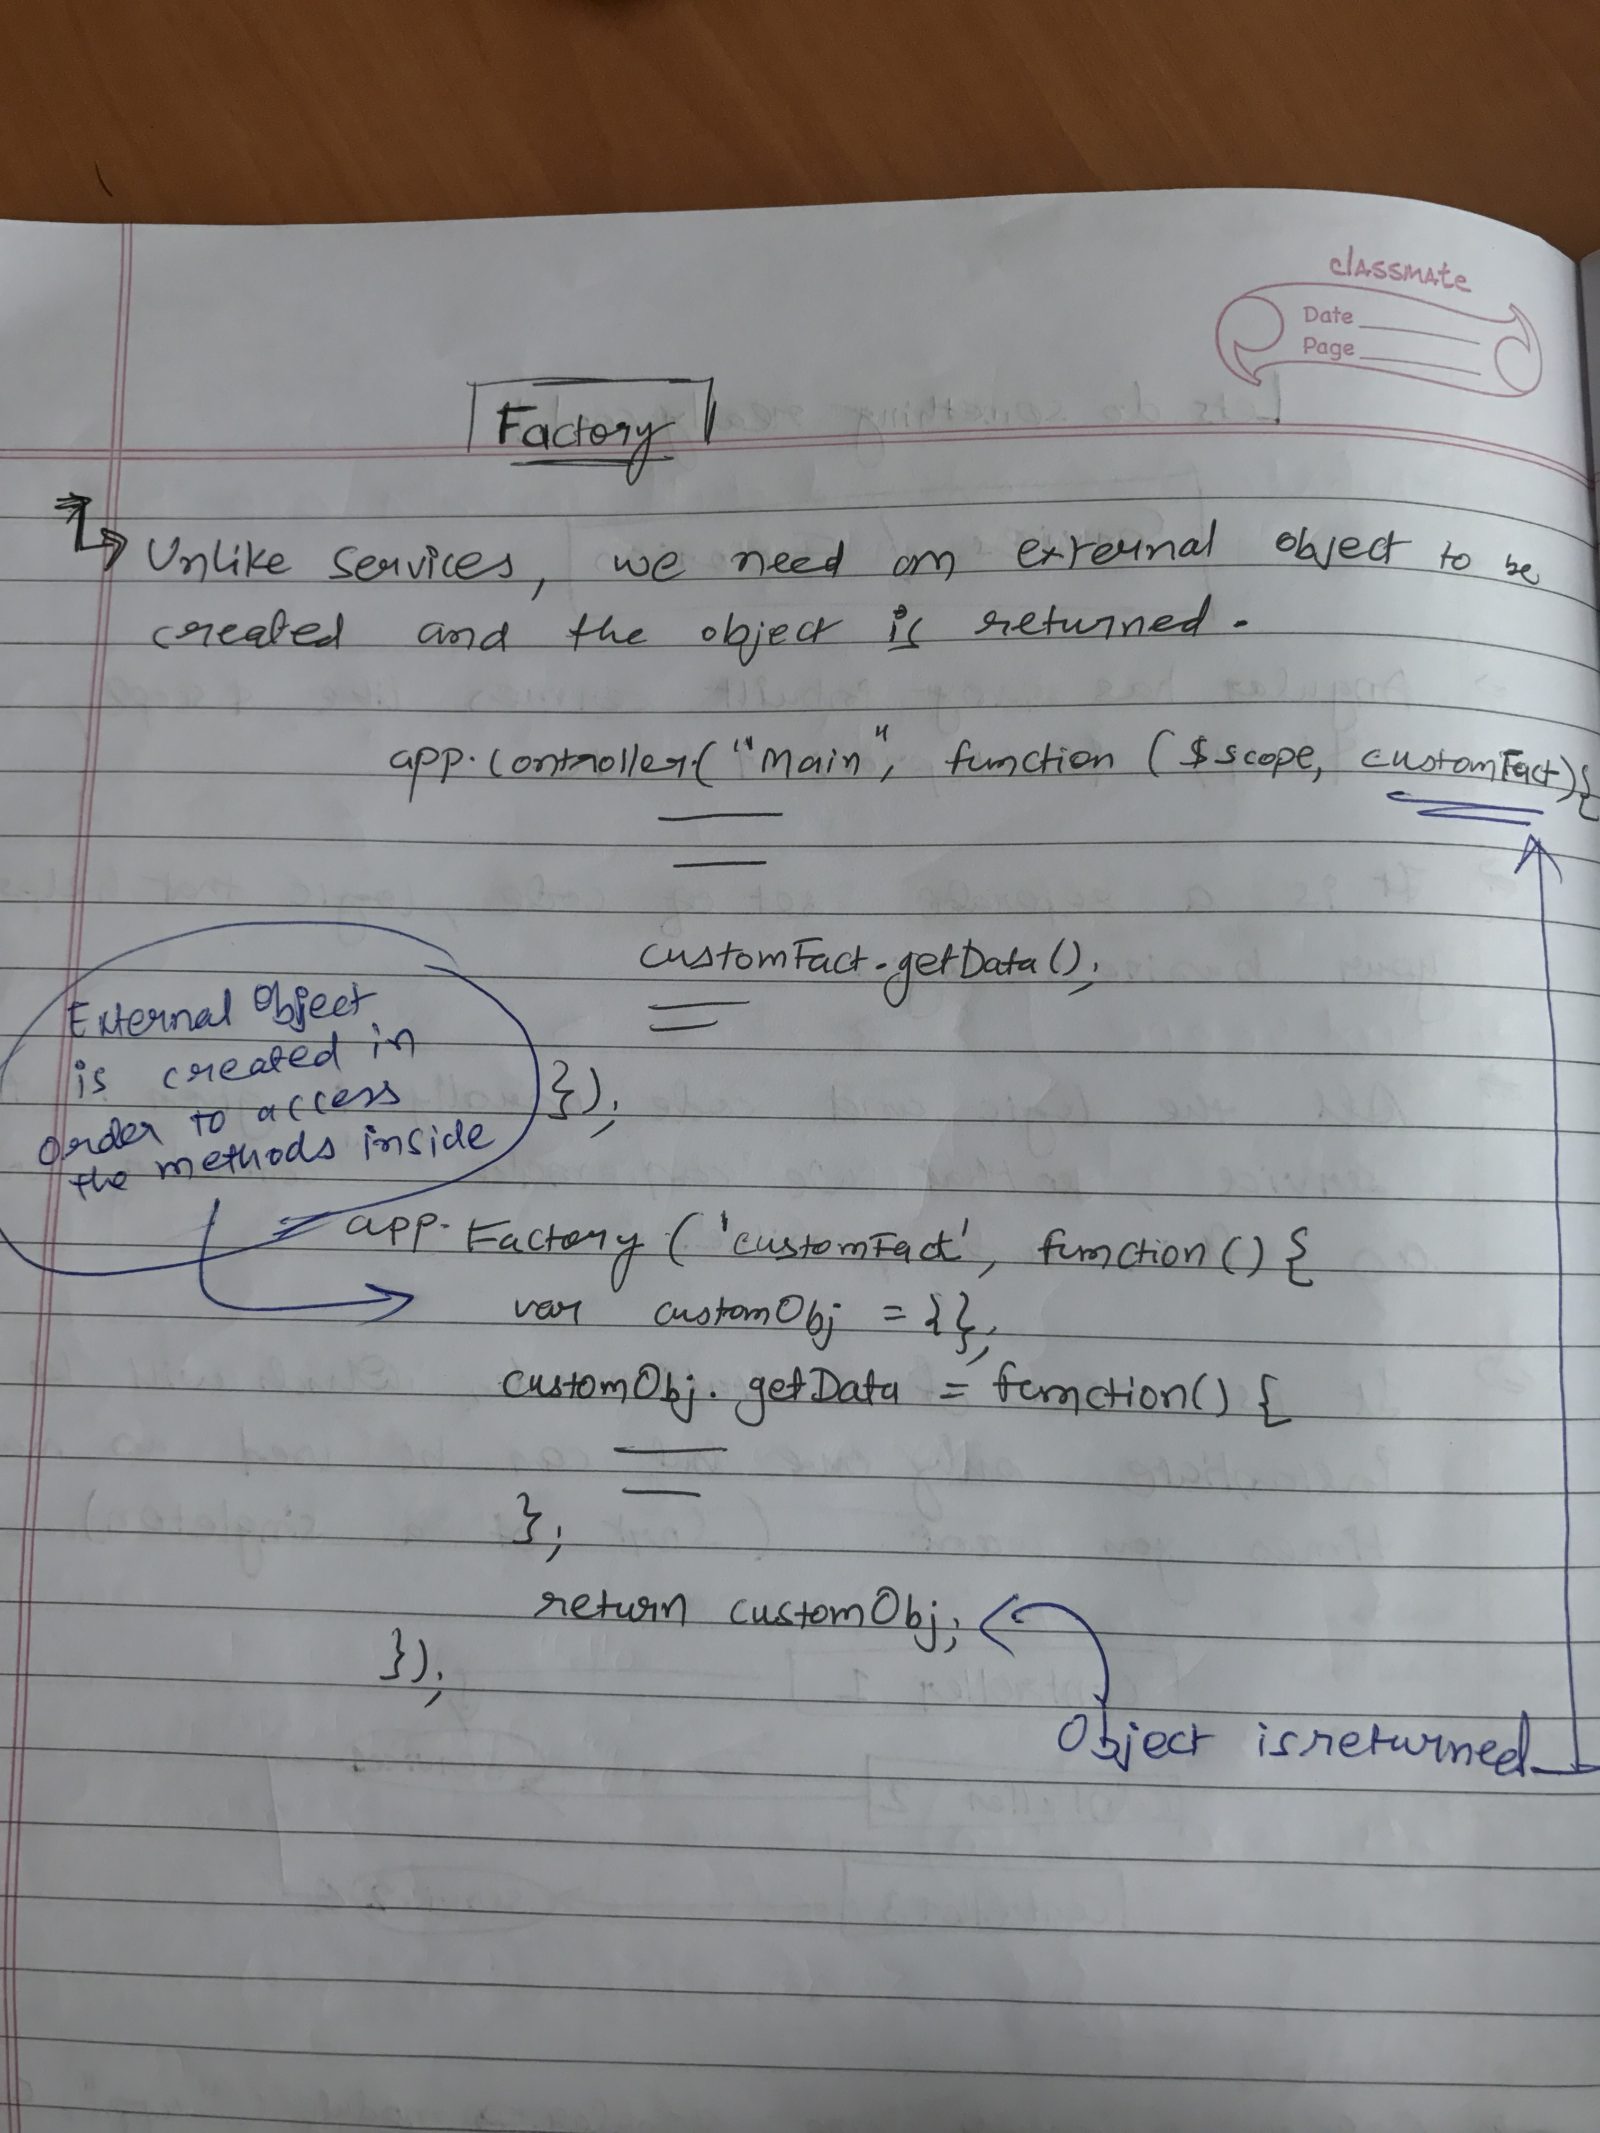 classmate
Date
Page
Factory
Unlike Services, we need an external object to be
created and the object is returned.
app.controller("Main", function ($scope, customFact){
customFact.getData();
});
External Object
is created in
order to access
the methods inside
app.Factory('customFact', function() {
var customObj = {};
customObj.getData = function() {
};
return customObj;
});
Object is returned